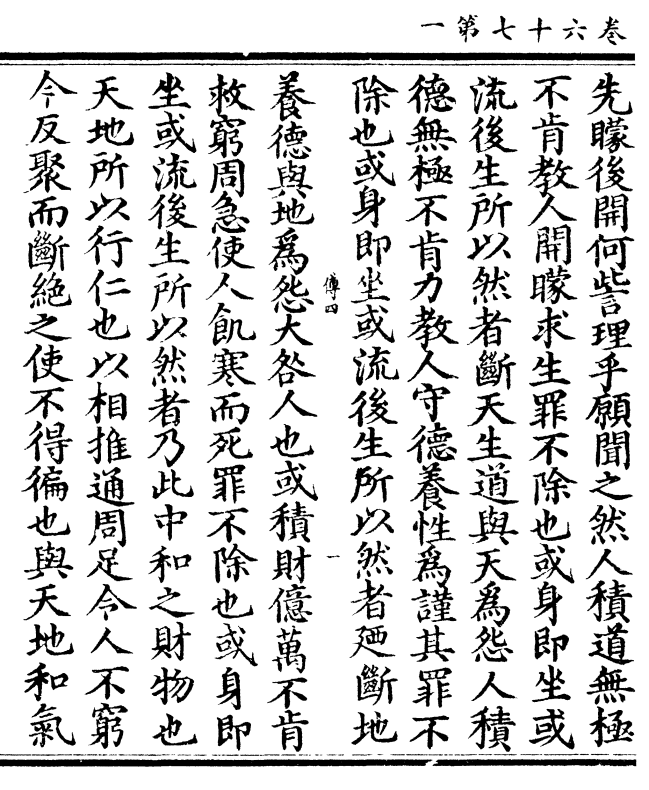 卷六十七第一
先矇後開何訾理乎願聞之然人積道無極
不肯教人開矇求生罪不除也或身即坐或
流後生所以然者斷天生道與天爲怨人積
德無極不肯力教人守德養性爲謹其罪不
除也或身即坐或流後生所以然者廼斷地
傅四
一
養德與地爲怨大咎人也或積財億萬不肯
救窮周急使人飢寒而死罪不除也或身即
坐或流後生所以然者乃此中和之財物也
天地所以行仁也以相推通周足令人不窮
今反聚而斷絕之使不得徧也與天地和氣